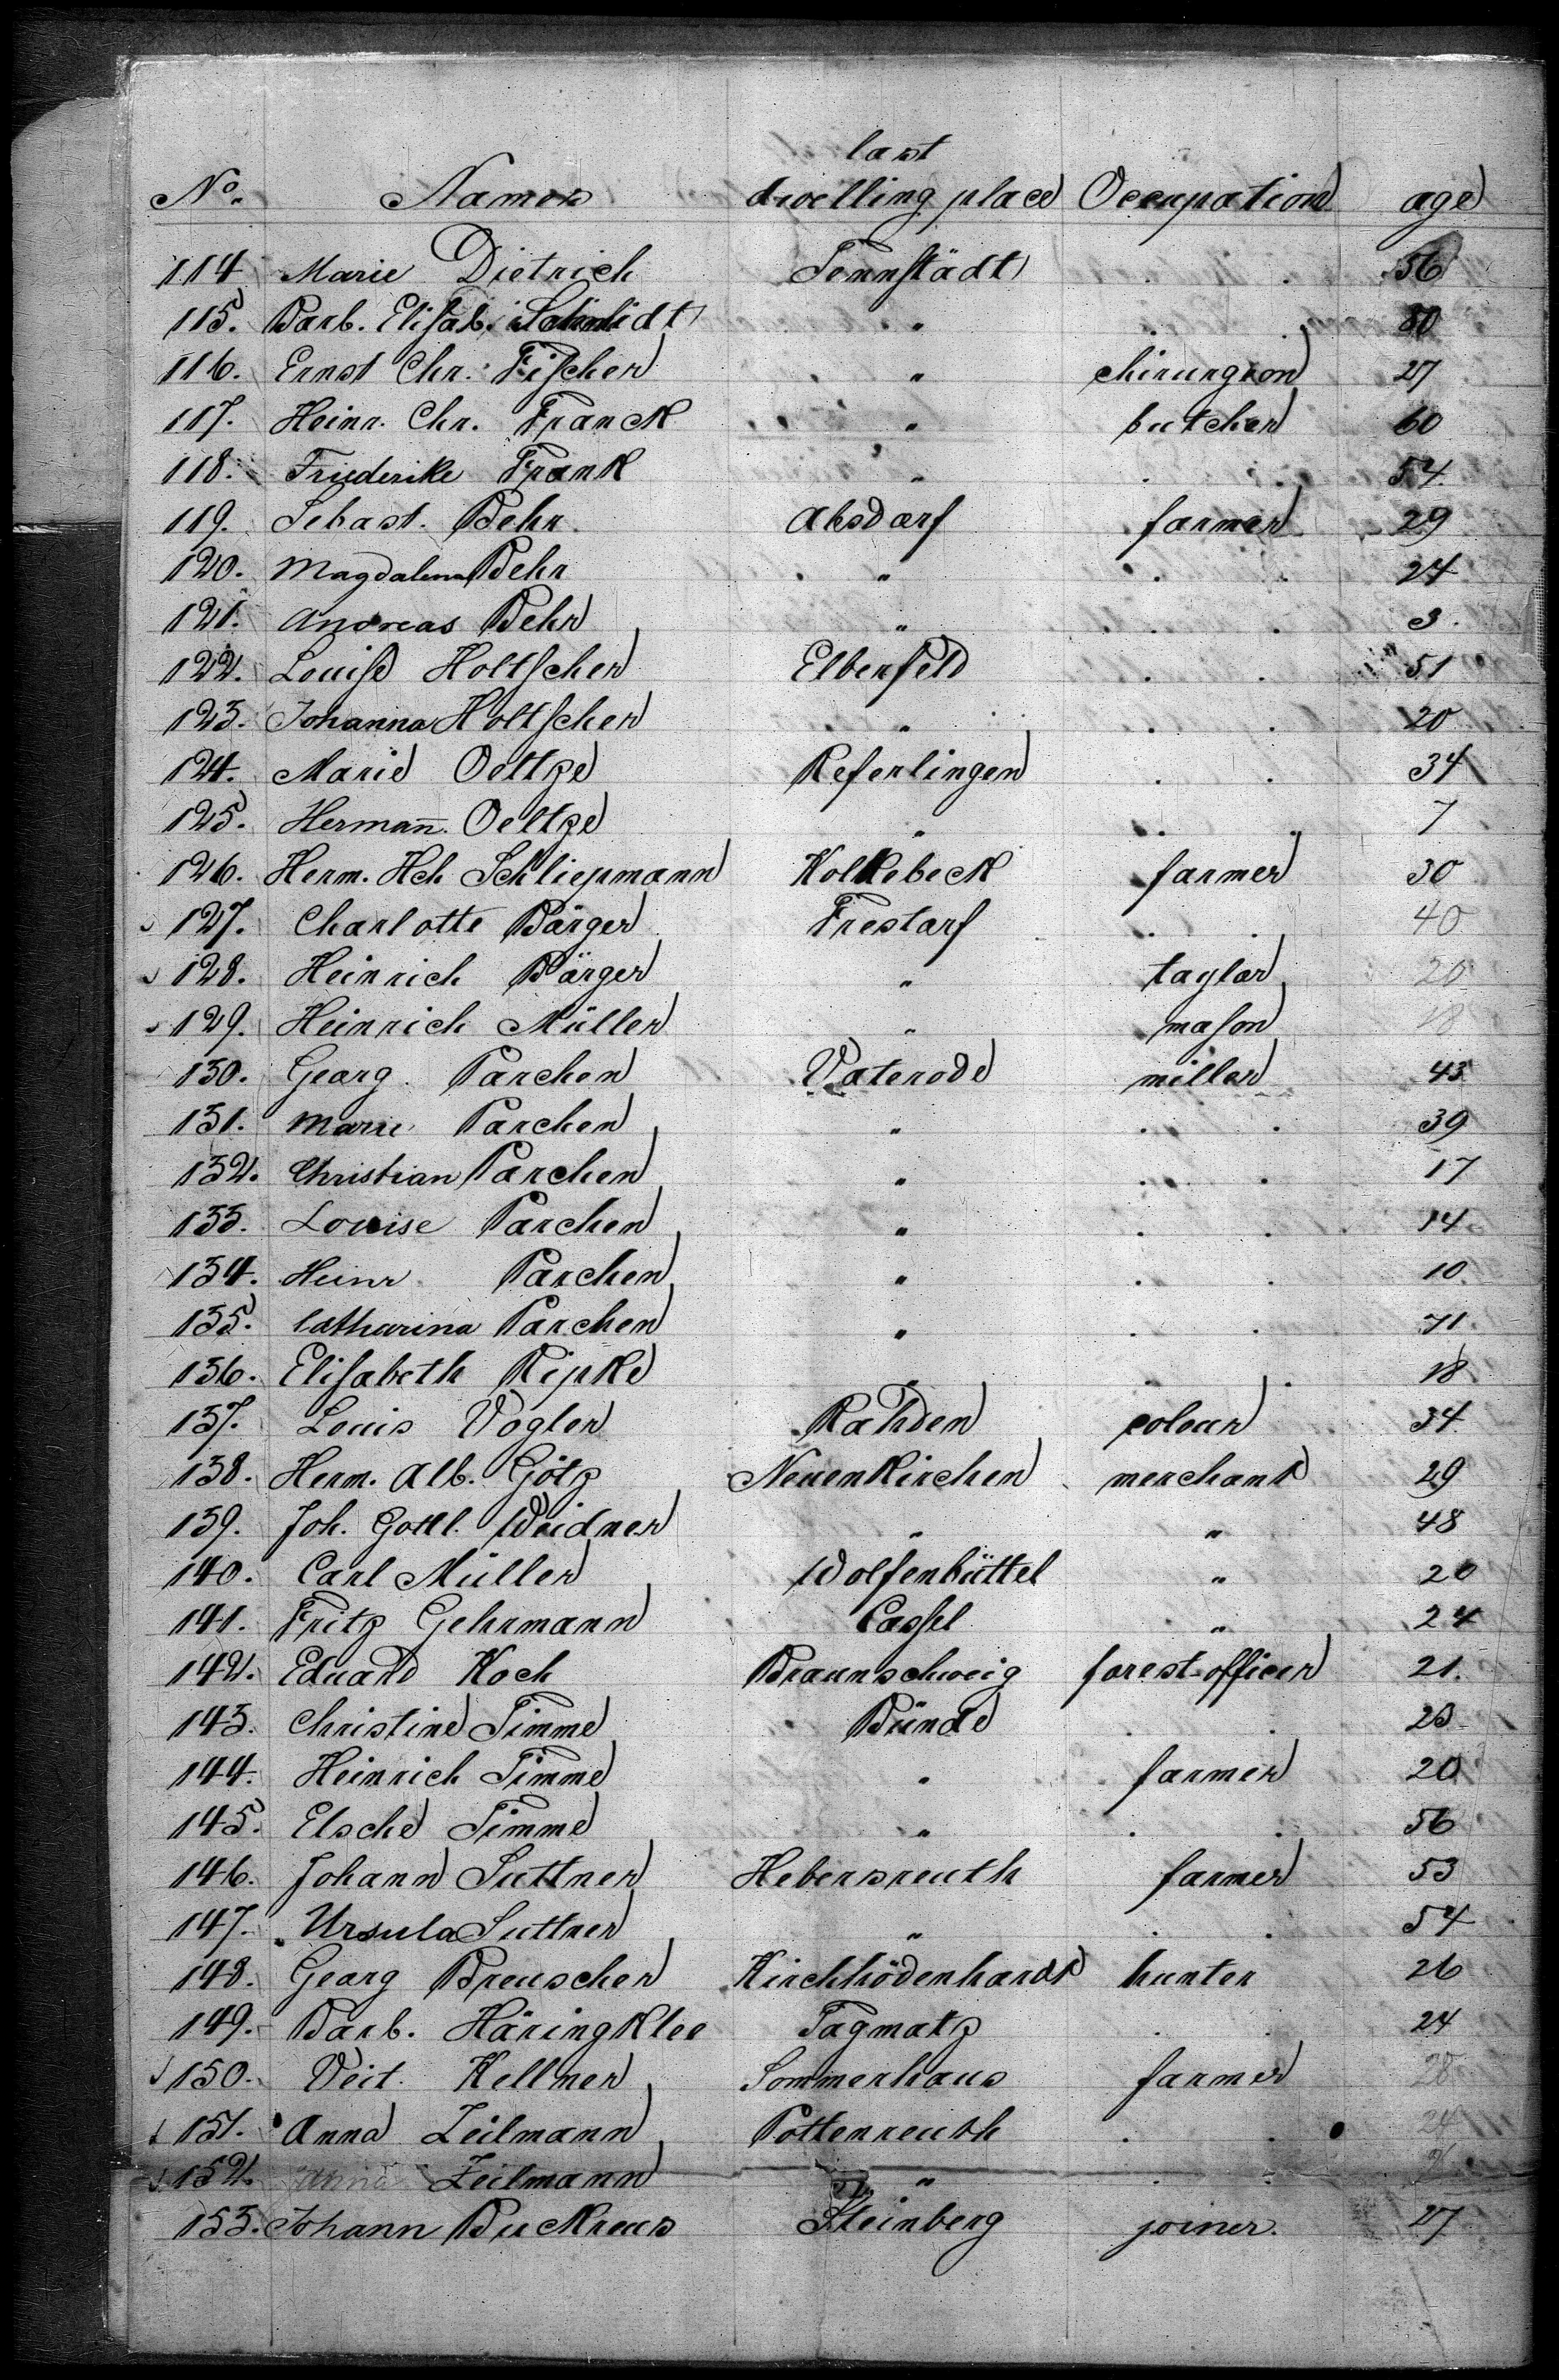 last
No. Names dwelling place Occupation age
114 Marie Dietrich Tennstädt . . 56
115. Barb. Elisab. Schmidt " . . 80
116. Ernst Chr. Fischer " chirurgeon 27
117. Heinr. Chr. Franck " butcher 60
118. Friederike Frank " . . 54
119. Sebast. Behr Absdorf farmer 29
120. Magdalena Behr " . . 24
121. Andreas Behr " . . 3
122. Louise Holtscher Elberfeld . . 51
123. Johanna Holtscher " . . 20
124. Marie Oeltze Referlingen . . 34
125. Hermann Oeltze " . . 7
126. Herm. Hch Schliepmann Kolkebeck farmer 30
127. Charlotte Bärger Frestorf . . 40
128. Heinrich Bärger " taylor 20
129. Heinrich Müller " mason 18
130. Georg Parchen Vaterode miller 43
131. Marie Parchen " . . 39
132. Christian Parchen " . . 17
133. Louise Parchen " . . 14
134. Heinr Parchen " . . 10
135. Catharina Parchen " . . 71
136. Elisabeth Ripke " . . 18
137. Louis Vogler Rahden colour 34
138. Herm. Alb. Götz Neuenkirchen merchant 29
139. Joh. Gottl. Weidner " " 48
140. Carl Müller Wolfenbüttel " 20
141. Fritz Gehrmann Cassel " 24
142. Eduard Koch Braunschweig forest-officer 21.
143. Christine Timme Bünde . . 23
144. Heinrich Timme " farmer 20
145. Elsche Timme " . . 56
146. Johann Suttner Hebersreuth farmer 53
147. Ursula Suttner " . . 54
148. Georg Breuscher Kirchhödenhardt hunter 26
149. Barb. Häringklee Tagmatz . . 24
150. Veit Kellner Sommerhaus farmer 28
151. Anna Zeilmann Pottenreuth . . 24
152. Anna Zeilmann " . .
153. Johann Buckreus Steinberg joiner. 27